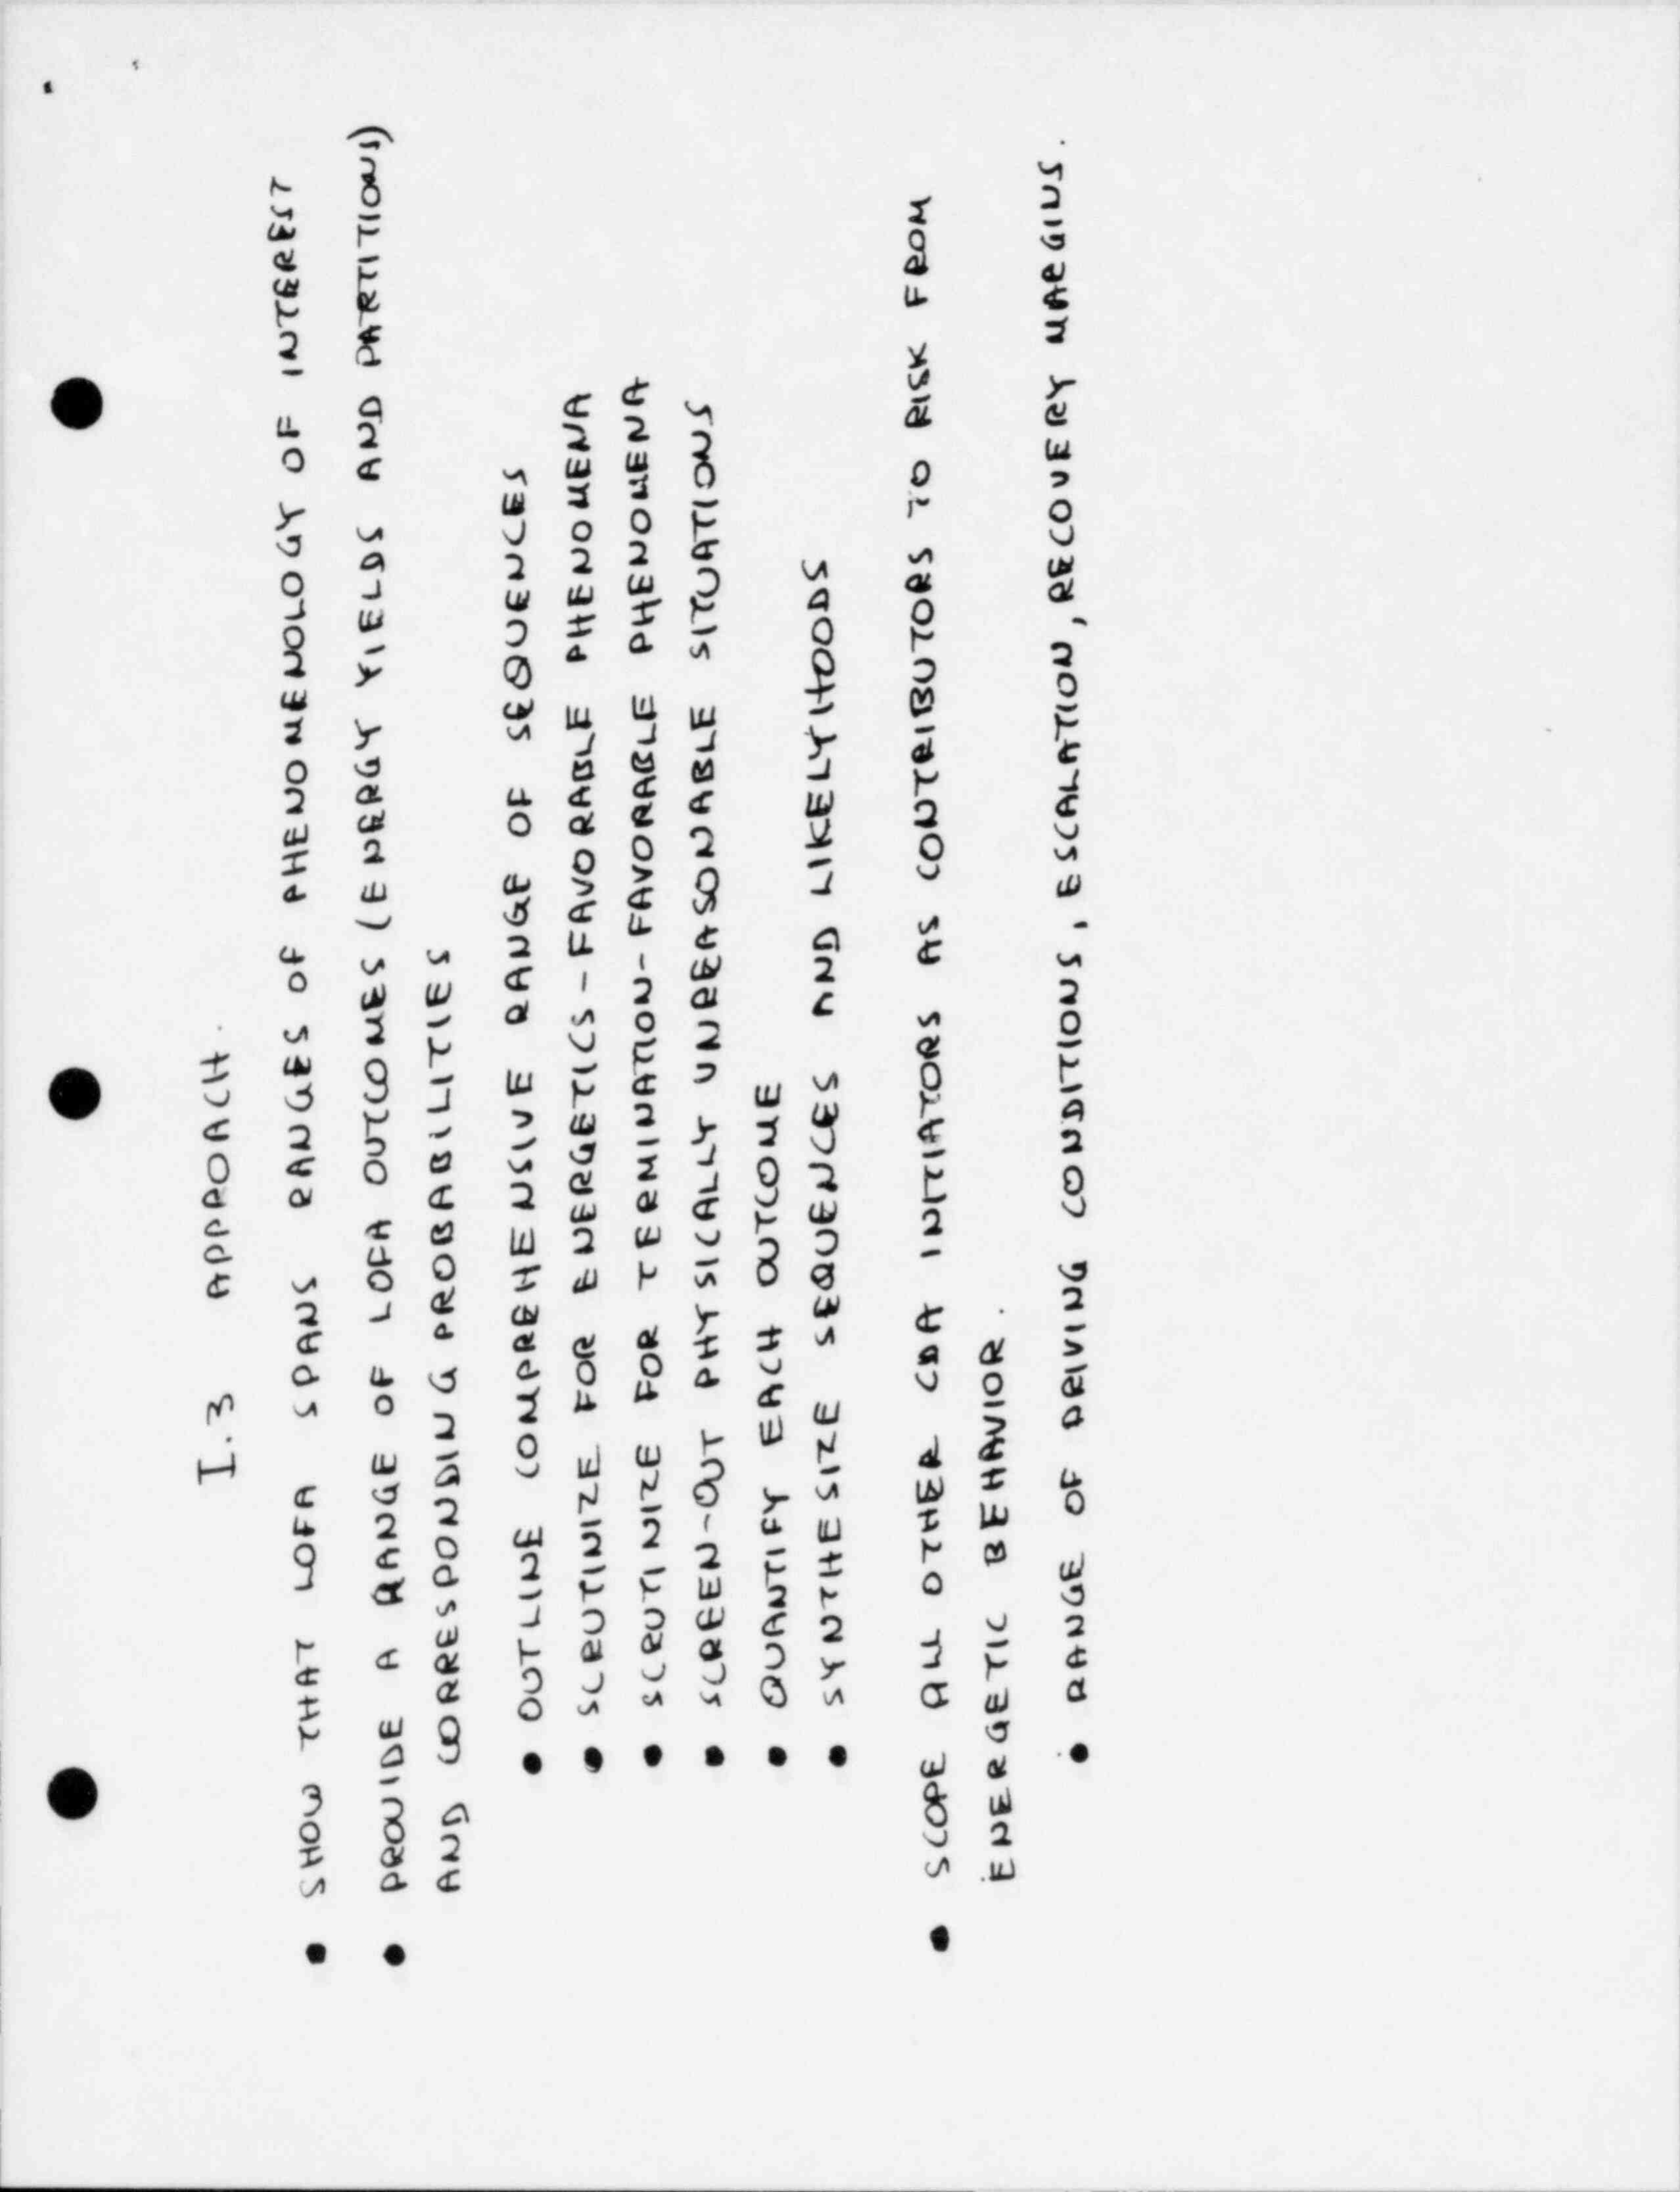 I.3 APPROACH.
• SHOW THAT LOFA SPANS RANGES OF PHENOMENOLOGY OF INTEREST
• PROVIDE A RANGE OF LOFA OUTCOMES (ENERGY YIELDS AND PARTITIONS)
AND CORRESPONDING PROBABILITIES
• OUTLINE COMPREHENSIVE RANGE OF SEQUENCES
• SCRUTINIZE FOR ENERGETICS-FAVORABLE PHENOMENA
• SCRUTINIZE FOR TERMINATION-FAVORABLE PHENOMENA
• SCREEN-OUT PHYSICALLY UNREASONABLE SITUATIONS
• QUANTIFY EACH OUTCOME
• SYNTHESIZE SEQUENCES AND LIKELYHOODS
• SCOPE ALL OTHER CDA INITIATORS AS CONTRIBUTORS TO RISK FROM
ENERGETIC BEHAVIOR.
• RANGE OF DRIVING CONDITIONS, ESCALATION, RECOVERY MARGINS.